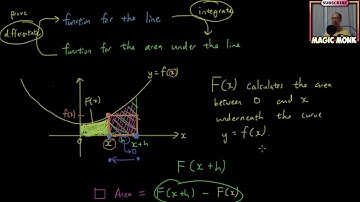 prove
differentiate
function for the line
integrate
function for the area under the line
SUBSCRIBE
MAGIC MONK
y=f(x)
f(x)
F(x)
F(x) calculates the area
between 0 and x
underneath the curve
y = f(x).
0
x
h
x+h
x
F(x+h)
Area = F(x+h) - F(x)